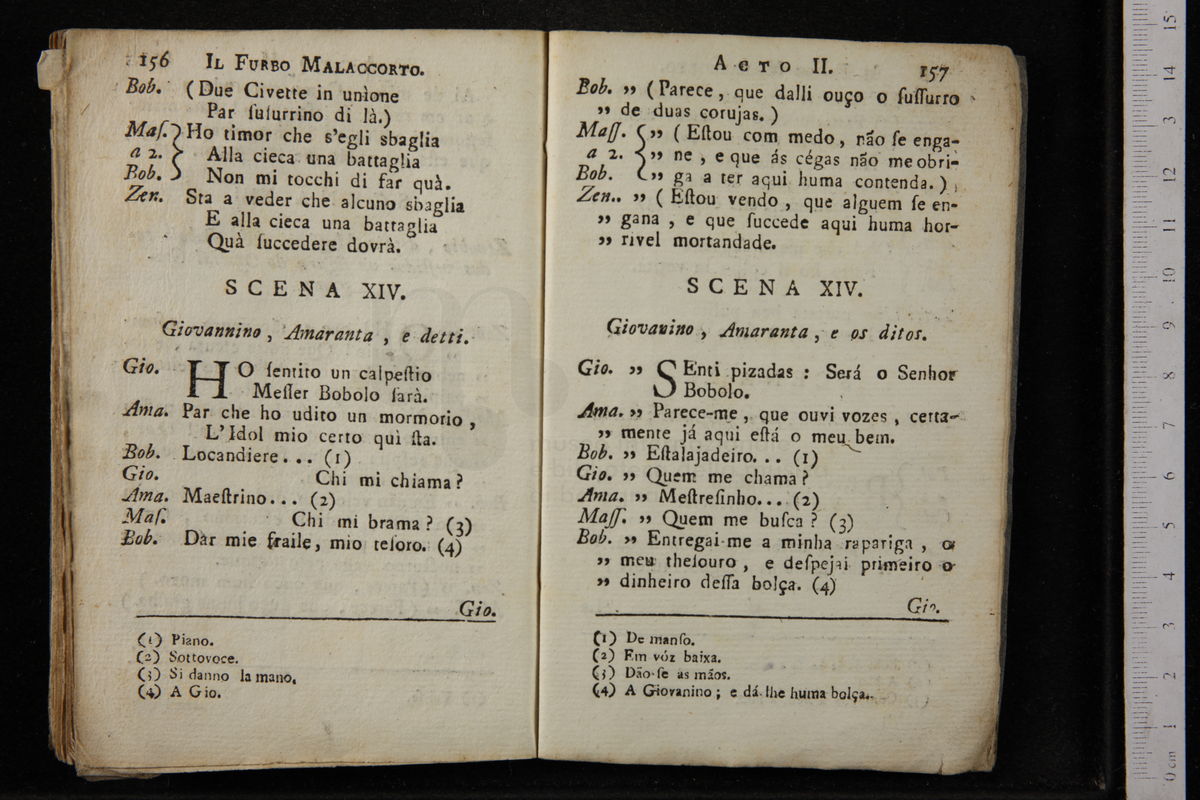 156 IL FURBO MALACCORTO.
Bob. (Due Civette in unìone
Par ſuſurrino di là.)
Maſ. Ho timor che s'egli sbaglia
a 2. Alla cieca una battaglia
Bob. Non mi tocchi di far quà.
Zen. Sta a veder che alcuno sbaglia
E alla cieca una battaglia
Quà ſuccedere dovrà.
SCENA XIV.
Giovannino, Amaranta, e detti.
Gio. HO ſentito un calpeſtio
Meſſer Bobolo ſarà.
Ama. Par che ho udito un mormorio,
L'Idol mio certo quì ſta.
Bob. Locandiere... (1)
Gio. Chi mi chiama?
Ama. Maeſtrino... (2)
Maſ. Chi mi brama? (3)
Bob. Dàr mie fraile, mio teſoro. (4)
Gio.
(1) Piano.
(2) Sottovoce.
(3) Si danno la mano.
(4) A Gio.
ACTO II. 157
Bob. ,, (Parece, que dalli ouço o ſuſſurro
,, de duas corujas.)
Maſſ. ,, (Eſtou com medo, não ſe enga-
a 2. ,, ne, e que ás cégas não me obri-
Bob. ,, ga a ter aqui huma contenda.)
Zen. ,, (Eſtou vendo, que alguem ſe en-
,, gana, e que ſuccede aqui huma hor-
,, rivel mortandade.
SCENA XIV.
Giovanino, Amaranta, e os ditos.
Gio. ,, SEnti pizadas: Será o Senhor
Bobolo.
Ama. ,, Parece-me, que ouvi vozes, certa-
,, mente já aqui eſtá o meu bem.
Bob. ,, Eſtalajadeiro... (1)
Gio. ,, Quem me chama?
Ama. ,, Meſtreſinho... (2)
Maſſ. ,, Quem me buſca? (3)
Bob. ,, Entregai-me a minha rapariga, o
,, meu theſouro, e deſpejai primeiro o
,, dinheiro deſſa bolça. (4)
Gio.
(1) De manſo.
(2) Em vóz baixa.
(3) Dão-ſe as mãos.
(4) A Giovanino; e dá-lhe huma bolça.
0 cm 1 2 3 4 5 6 7 8 9 10 11 12 13 14 15